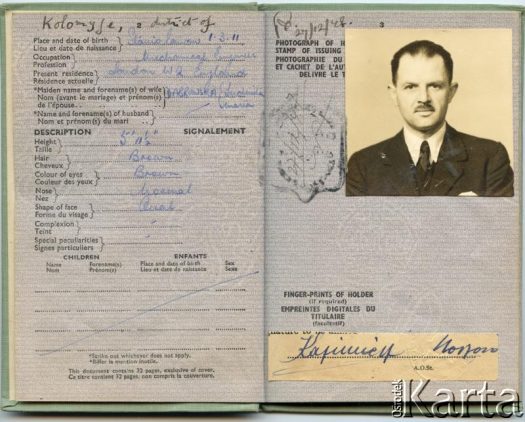 Kolomyja, 2 district of
Place and date of birth } Stanislawow 1.3.11
Lieu et date de naissance
Occupation } Mechanical Engineer
Profession
Present residence } London W2 England
Résidence actuelle
*Maiden name and forename(s) of wife
Nom (avant le mariage) et prénom(s)
de l'épouse
Maria
*Name and forename(s) of husband
Nom et prénom(s) du mari
DESCRIPTION SIGNALEMENT
Height }
Taille
Hair } Brown
Cheveux
Colour of eyes } Brown
Couleur des yeux
Nose } Normal
Nez
Shape of face } Oval
Forme du visage
Complexion }
Teint
Special peculiarities }
Signes particuliers
CHILDREN ENFANTS
Name Forename(s) Place and date of birth Sex
Nom Prénom(s) Lieu et date de naissance Sexe
*Strike out whichever does not apply.
*Biffer la mention inutile.
This document contains 32 pages, exclusive of cover.
Ce titre contient 32 pages, non compris la couverture.
3
PHOTOGRAPH OF H
STAMP OF ISSUING
PHOTOGRAPHIE DU
ET CACHET DE L'AUT
DELIVRE LE T
FINGER-PRINTS OF HOLDER
(if required)
EMPREINTES DIGITALES DU
TITULAIRE
(facultatif)
Kazimierz
A.O.St.
Ośrodek
Karta
www.karta.org.pl